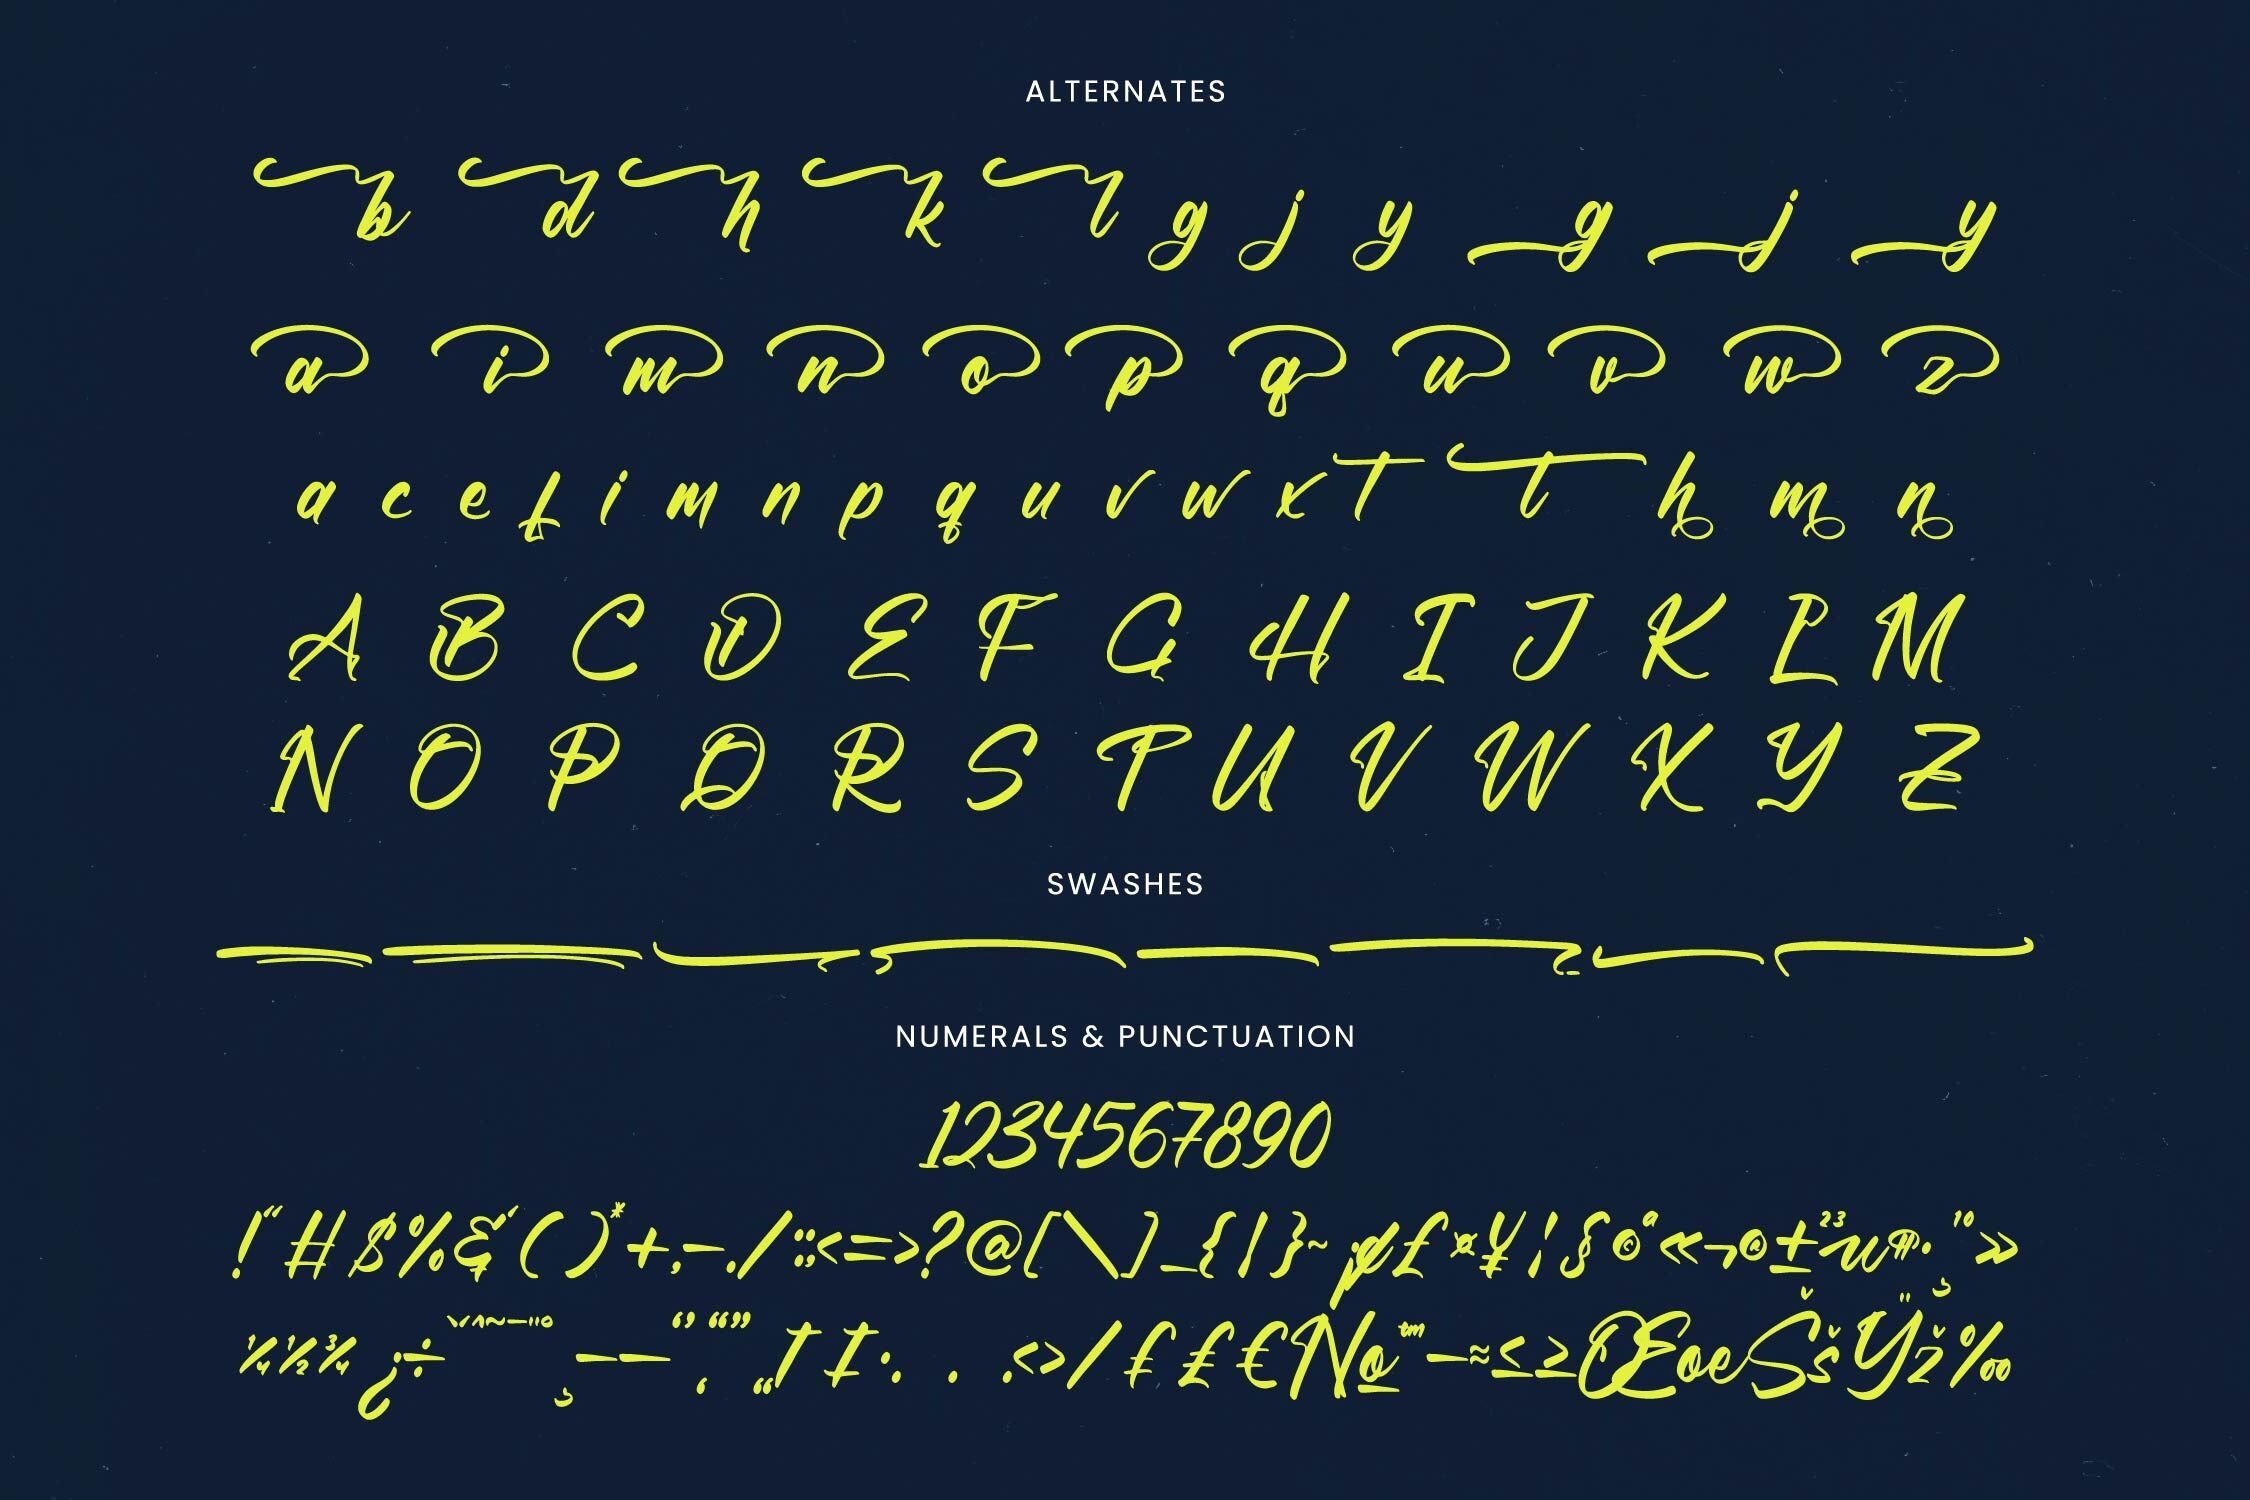 ALTERNATES
b d h k l g j y g j y
a i m n o p q u v w z
a c e f i m n p q u v w x T t h m n
A B C D E F G H I J K L M
N O P Q R S T U V W X Y Z
SWASHES
NUMERALS & PUNCTUATION
1234567890
!“#$%&‘()*+,-./:;<=>?@[\]_{|}~¡¢£¤¥¦§©ª«¬®±²³µ¶·¸¹º»
¼½¾¿÷ˇ^~–—‘’“”‚„†‡•.<>/₤£€№™−≈≤≥ŒœŠšŸž‰